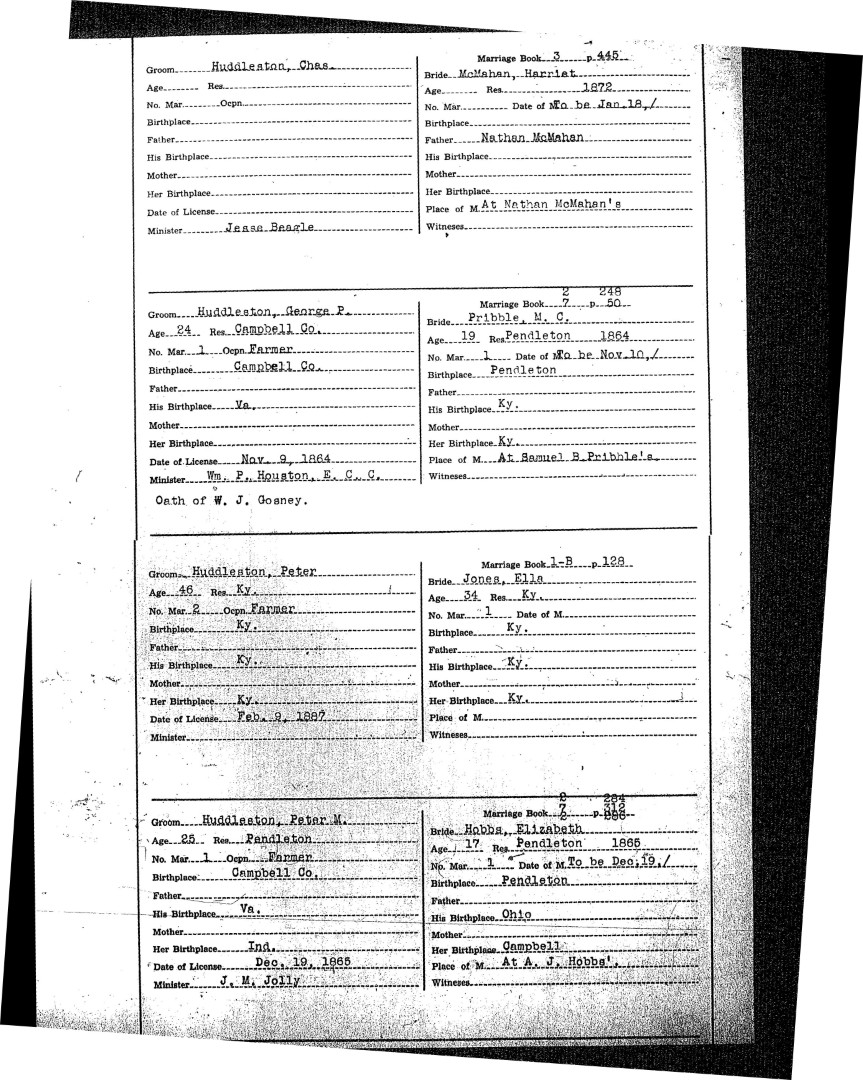 Groom Huddleston, Chas.
Age Res.
No. Mar. Ocpn.
Birthplace
Father
His Birthplace
Mother
Her Birthplace
Date of License
Minister Jesse Beagle
Marriage Book 3 p. 445
Bride McMahan, Harriet
Age Res. 1872
No. Mar. Date of M. To be Jan.18,/
Birthplace
Father Nathan McMahan
His Birthplace
Mother
Her Birthplace
Place of M. At Nathan McMahan's
Witneses
Groom Huddleston, George P.
Age 24 Res. Campbell Co.
No. Mar. 1 Ocpn. Farmer
Birthplace Campbell Co.
Father
His Birthplace Va.
Mother
Her Birthplace
Date of License Nov. 9, 1864
Minister Wm. P. Houston, E. C. C.
Oath of W. J. Gosney.
2 248
Marriage Book 7 p. 50
Bride Pribble, M. C.
Age 19 Res. Pendleton 1864
No. Mar. 1 Date of M. To be Nov.10,/
Birthplace Pendleton
Father
His Birthplace Ky.
Mother
Her Birthplace Ky.
Place of M. At Samuel B.Pribble's.
Witneses
Groom Huddleston, Peter
Age 46 Res. Ky.
No. Mar. 2 Ocpn. Farmer
Birthplace Ky.
Father
His Birthplace Ky.
Mother
Her Birthplace Ky.
Date of License Feb. 9, 1887
Minister
Marriage Book 1-B p. 128
Bride Jones, Ella
Age 34 Res. Ky.
No. Mar. 1 Date of M.
Birthplace Ky.
Father
His Birthplace Ky.
Mother
Her Birthplace Ky.
Place of M.
Witneses
Groom Huddleston, Peter M.
Age 25 Res. Pendleton
No. Mar. 1 Ocpn. Farmer
Birthplace Campbell Co.
Father
His Birthplace Va.
Mother
Her Birthplace Ind.
Date of License Dec. 19, 1865
Minister J. M. Jolly
2 284
Marriage Book 7 p. 312
Bride Hobbs, Elizabeth
Age 17 Res. Pendleton 1865
No. Mar. 1 Date of M. To be Dec.19,/
Birthplace Pendleton
Father
His Birthplace Ohio
Mother
Her Birthplace Campbell
Place of M. At A. J. Hobbs'.
Witneses